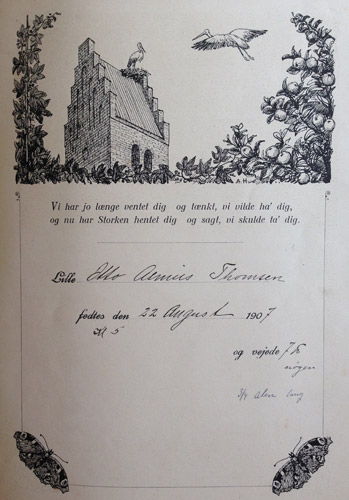 A.H.
Vi har jo længe ventet dig og tænkt, vi vilde ha' dig,
og nu har Storken hentet dig og sagt, vi skulde ta' dig.
Lille Otto Thomsen
fødtes den 22 August 1907
Kl 5
og vejede 7 ℔
nøgen
3/4 alen lang